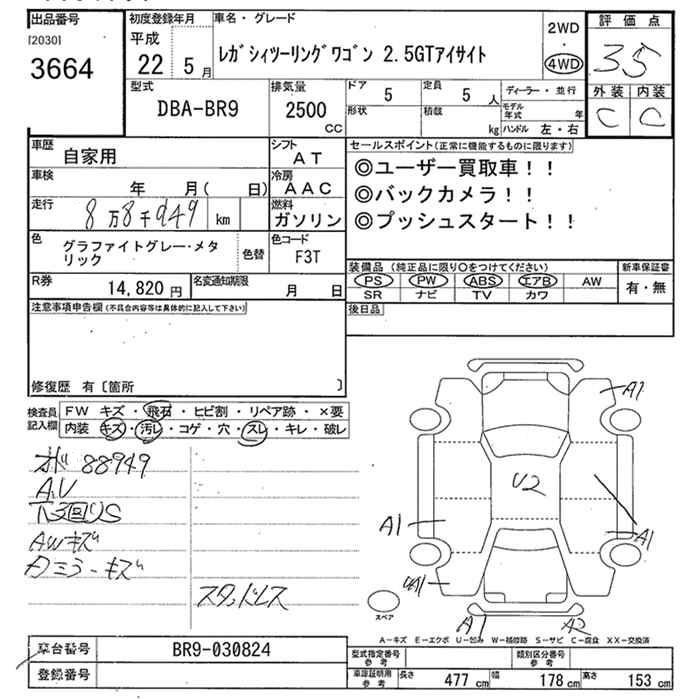 出品番号
[2030]
3664
初度登録年月
平成
22 5月
車名・グレード
ﾚｶﾞｼｨﾂｰﾘﾝｸﾞﾜｺﾞﾝ 2.5GTｱｲｻｲﾄ
2WD
・
4WD
評価点
3.5
外装 内装
C C
型式
DBA-BR9
排気量
2500
CC
ドア
5
定員
5人
形状
積載
kg
ディーラー・並行
モデル年式 年
ハンドル 左・右
車歴
自家用
シフト
AT
車検
年 月( 日)
冷房
AAC
走行
8万8千949 km
燃料
ガソリン
色
グラファイトグレー・メタリック
色替
色コード
F3T
R券
14,820円
名変通知期限
月 日
セールスポイント(正常に機能するものに限ります)
◎ユーザー買取車!!
◎バックカメラ!!
◎プッシュスタート!!
装備品(純正品に限り○をつけてください)
PS PW ABS エアB AW
SR ナビ TV カワ
新車保証書
有・無
後日品
注意事項申告欄(不具合内容等は具体的に記入して下さい)
修復歴 有〔箇所 〕
検査員記入欄
FW キズ・飛石・ヒビ割・リペア跡・×要
内装 キズ・汚レ・コゲ・穴・スレ・キレ・破レ
88949
A.V
AWキズ
カミラーキズ
スタッドレス
A1
U2
A1
A1
UA1
A1
A2
スペア
A―キズ E―エクボ U―凹み W―補修跡 S―サビ C―腐食 XX―交換済
車台番号
BR9-030824
登録番号
型式指定番号
参考
類別区分番号
参考
車庫証明用
参考
長さ 477cm 幅 178cm 高さ 153cm